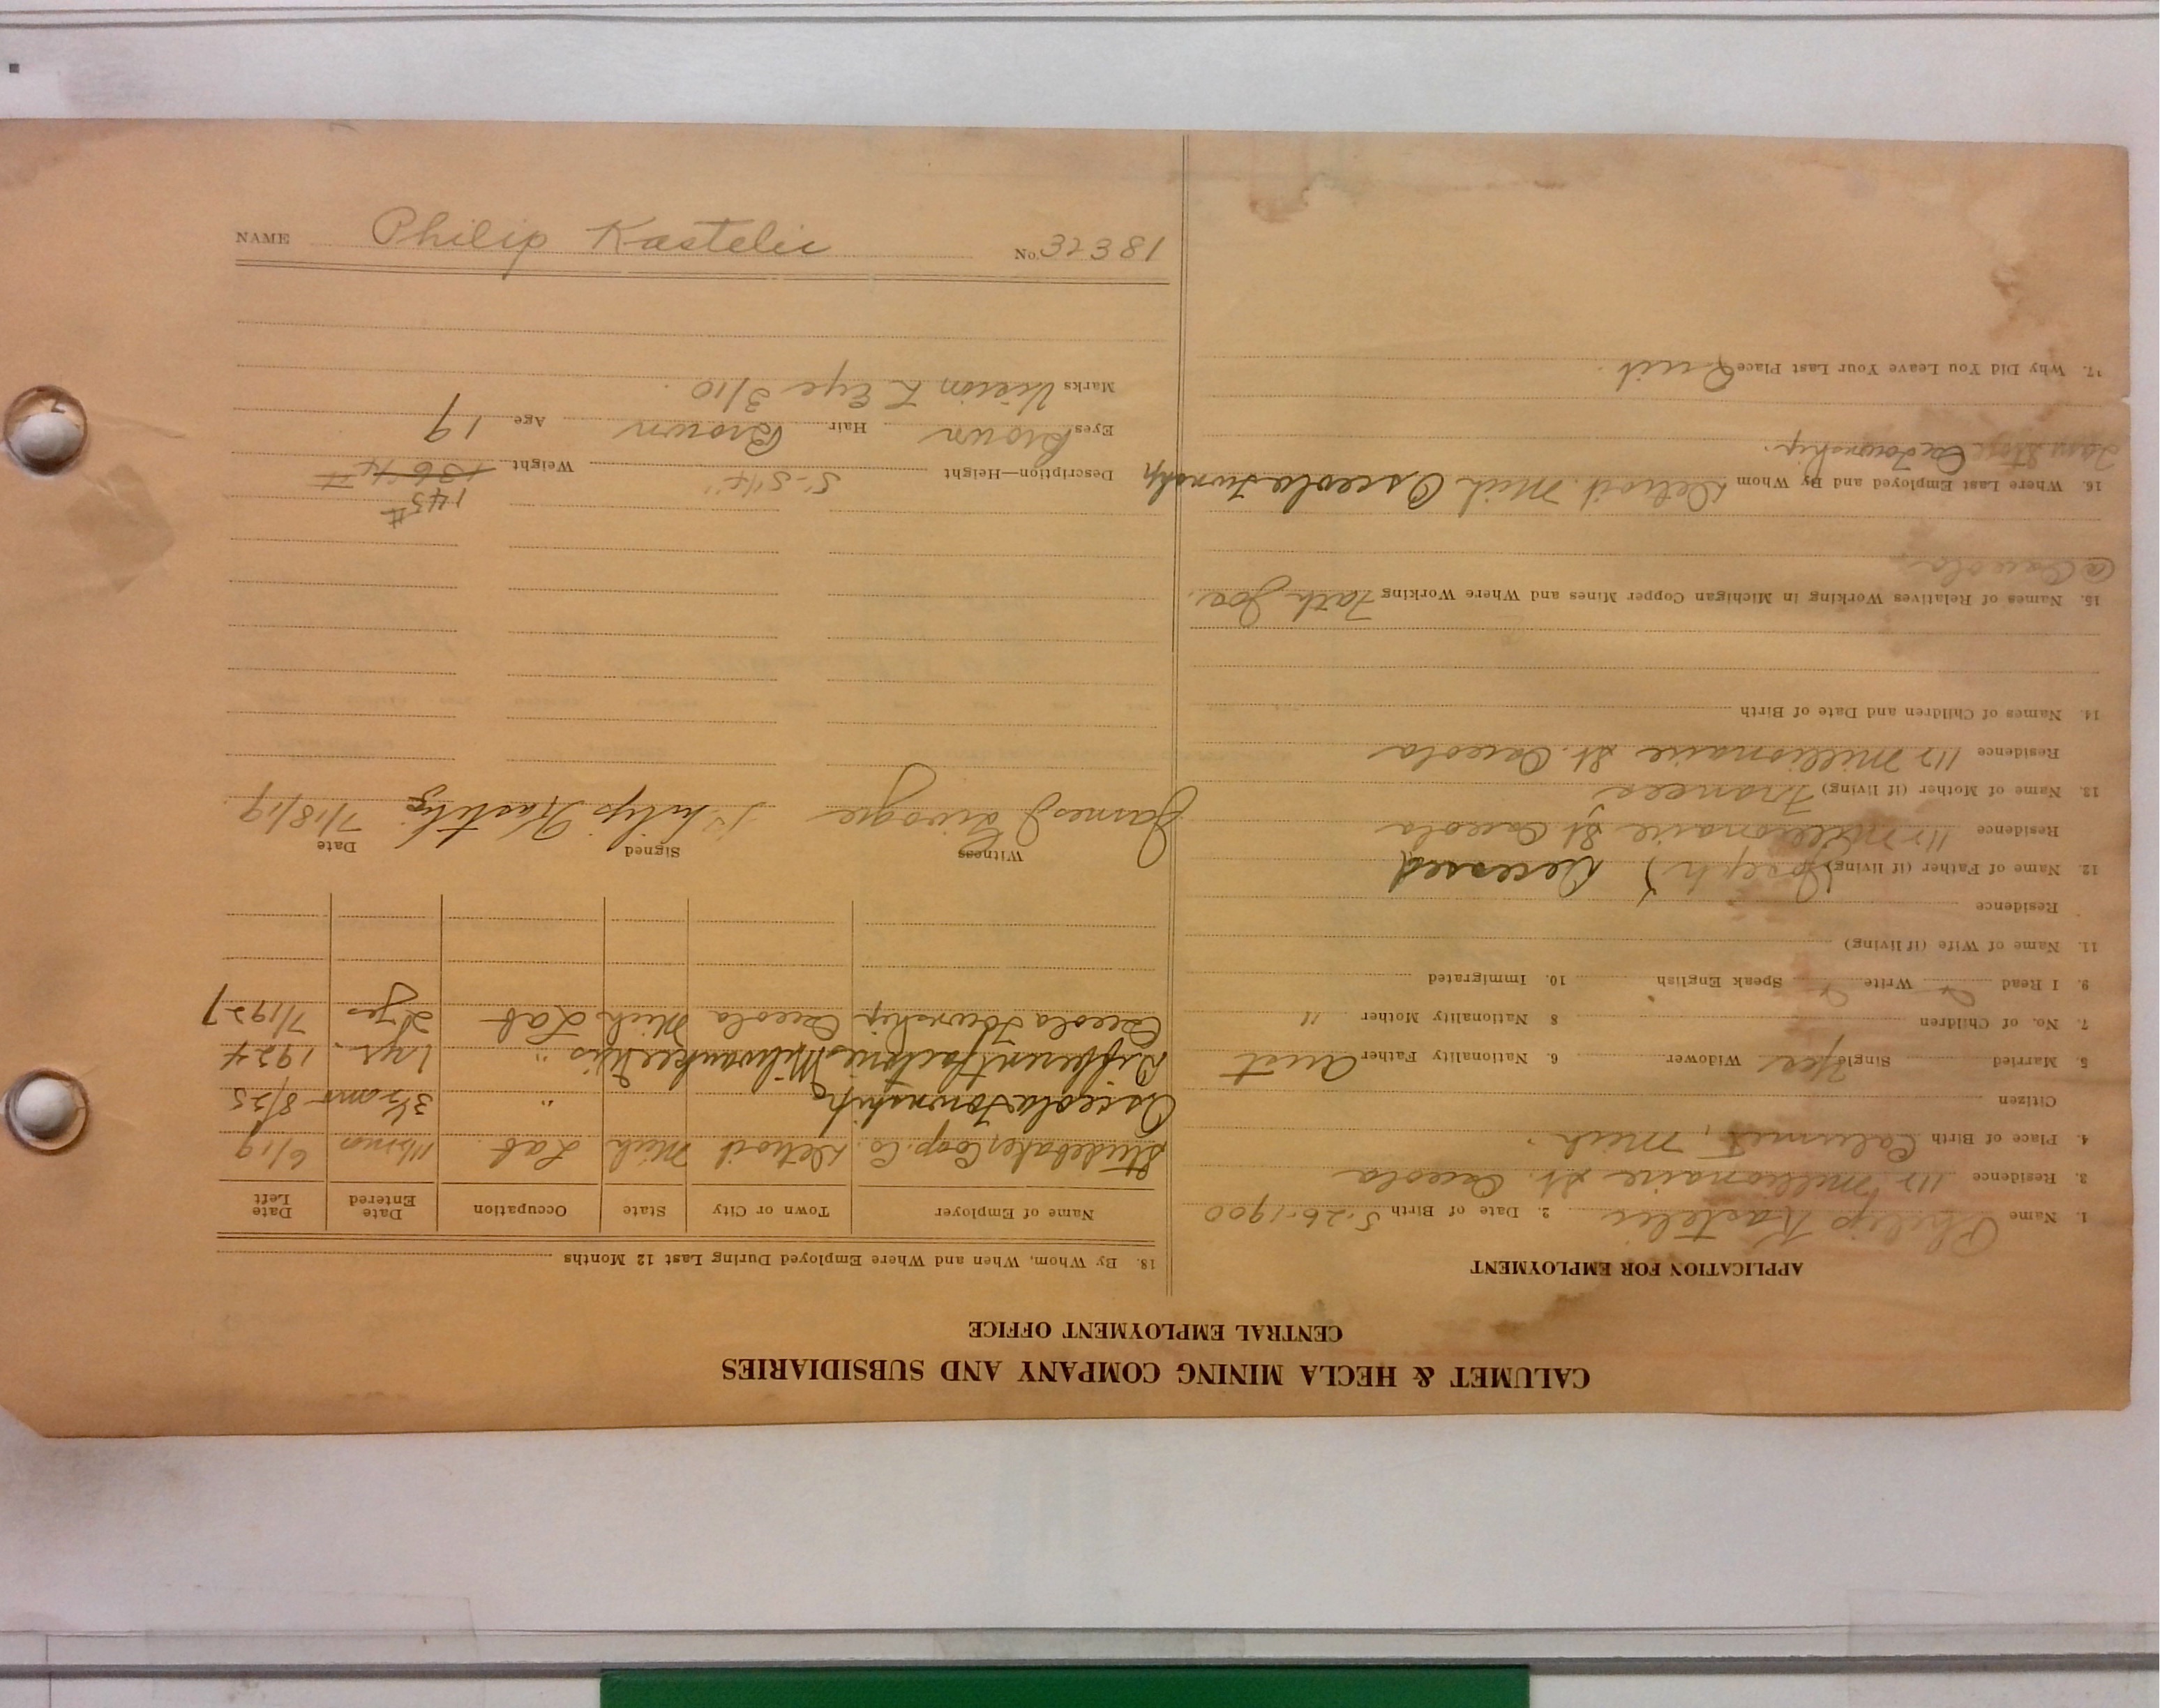 CALUMET & HECLA MINING COMPANY AND SUBSIDIARIES
CENTRAL EMPLOYMENT OFFICE
APPLICATION FOR EMPLOYMENT
1. Name Philip Kastelic 2. Date of Birth 5-26-1900
3. Residence 112 Millionaire St. Osceola
4. Place of Birth Calumet, Mich.
Citizen
5. Married Single Yes Widower 6. Nationality Father Aust
7. No. of Children 8 Nationality Mother "
9. I Read Write Speak English 10. Immigrated
11. Name of Wife (if living)
Residence
12. Name of Father (if living) (Joseph) Decessed
Residence 112 Millionaire St Osceola
13. Name of Mother (if living) Frances
Residence 112 Millionaire St. Osceola
14. Names of Children and Date of Birth
15. Names of Relatives Working in Michigan Copper Mines and Where Working Fath Joe,
@ Osceola
16. Where Last Employed and By Whom Detroit Mich Osceola Township
Osc Township.
17. Why Did You Leave Your Last Place Quit.
18. By Whom, When and Where Employed During Last 12 Months
Name of Employer Town or City State Occupation Date Entered Date Left
Studebaker Corp. Co. Detroit Mich Lab 6/19
Osceola Township " 8/25
Different factories Milwaukee Wis " 1 yr. 1924
Osceola Township Osceola Mich Lab 2 yrs 7/1927
Witness Signed Date
James J Philip Kastelic 7/18/19
145#
Description—Height 5'-5¼" Weight 136¼#
Eyes Brown Hair Brown Age 19
Marks Vision L Eye 3/10
NAME Philip Kastelic No. 32381